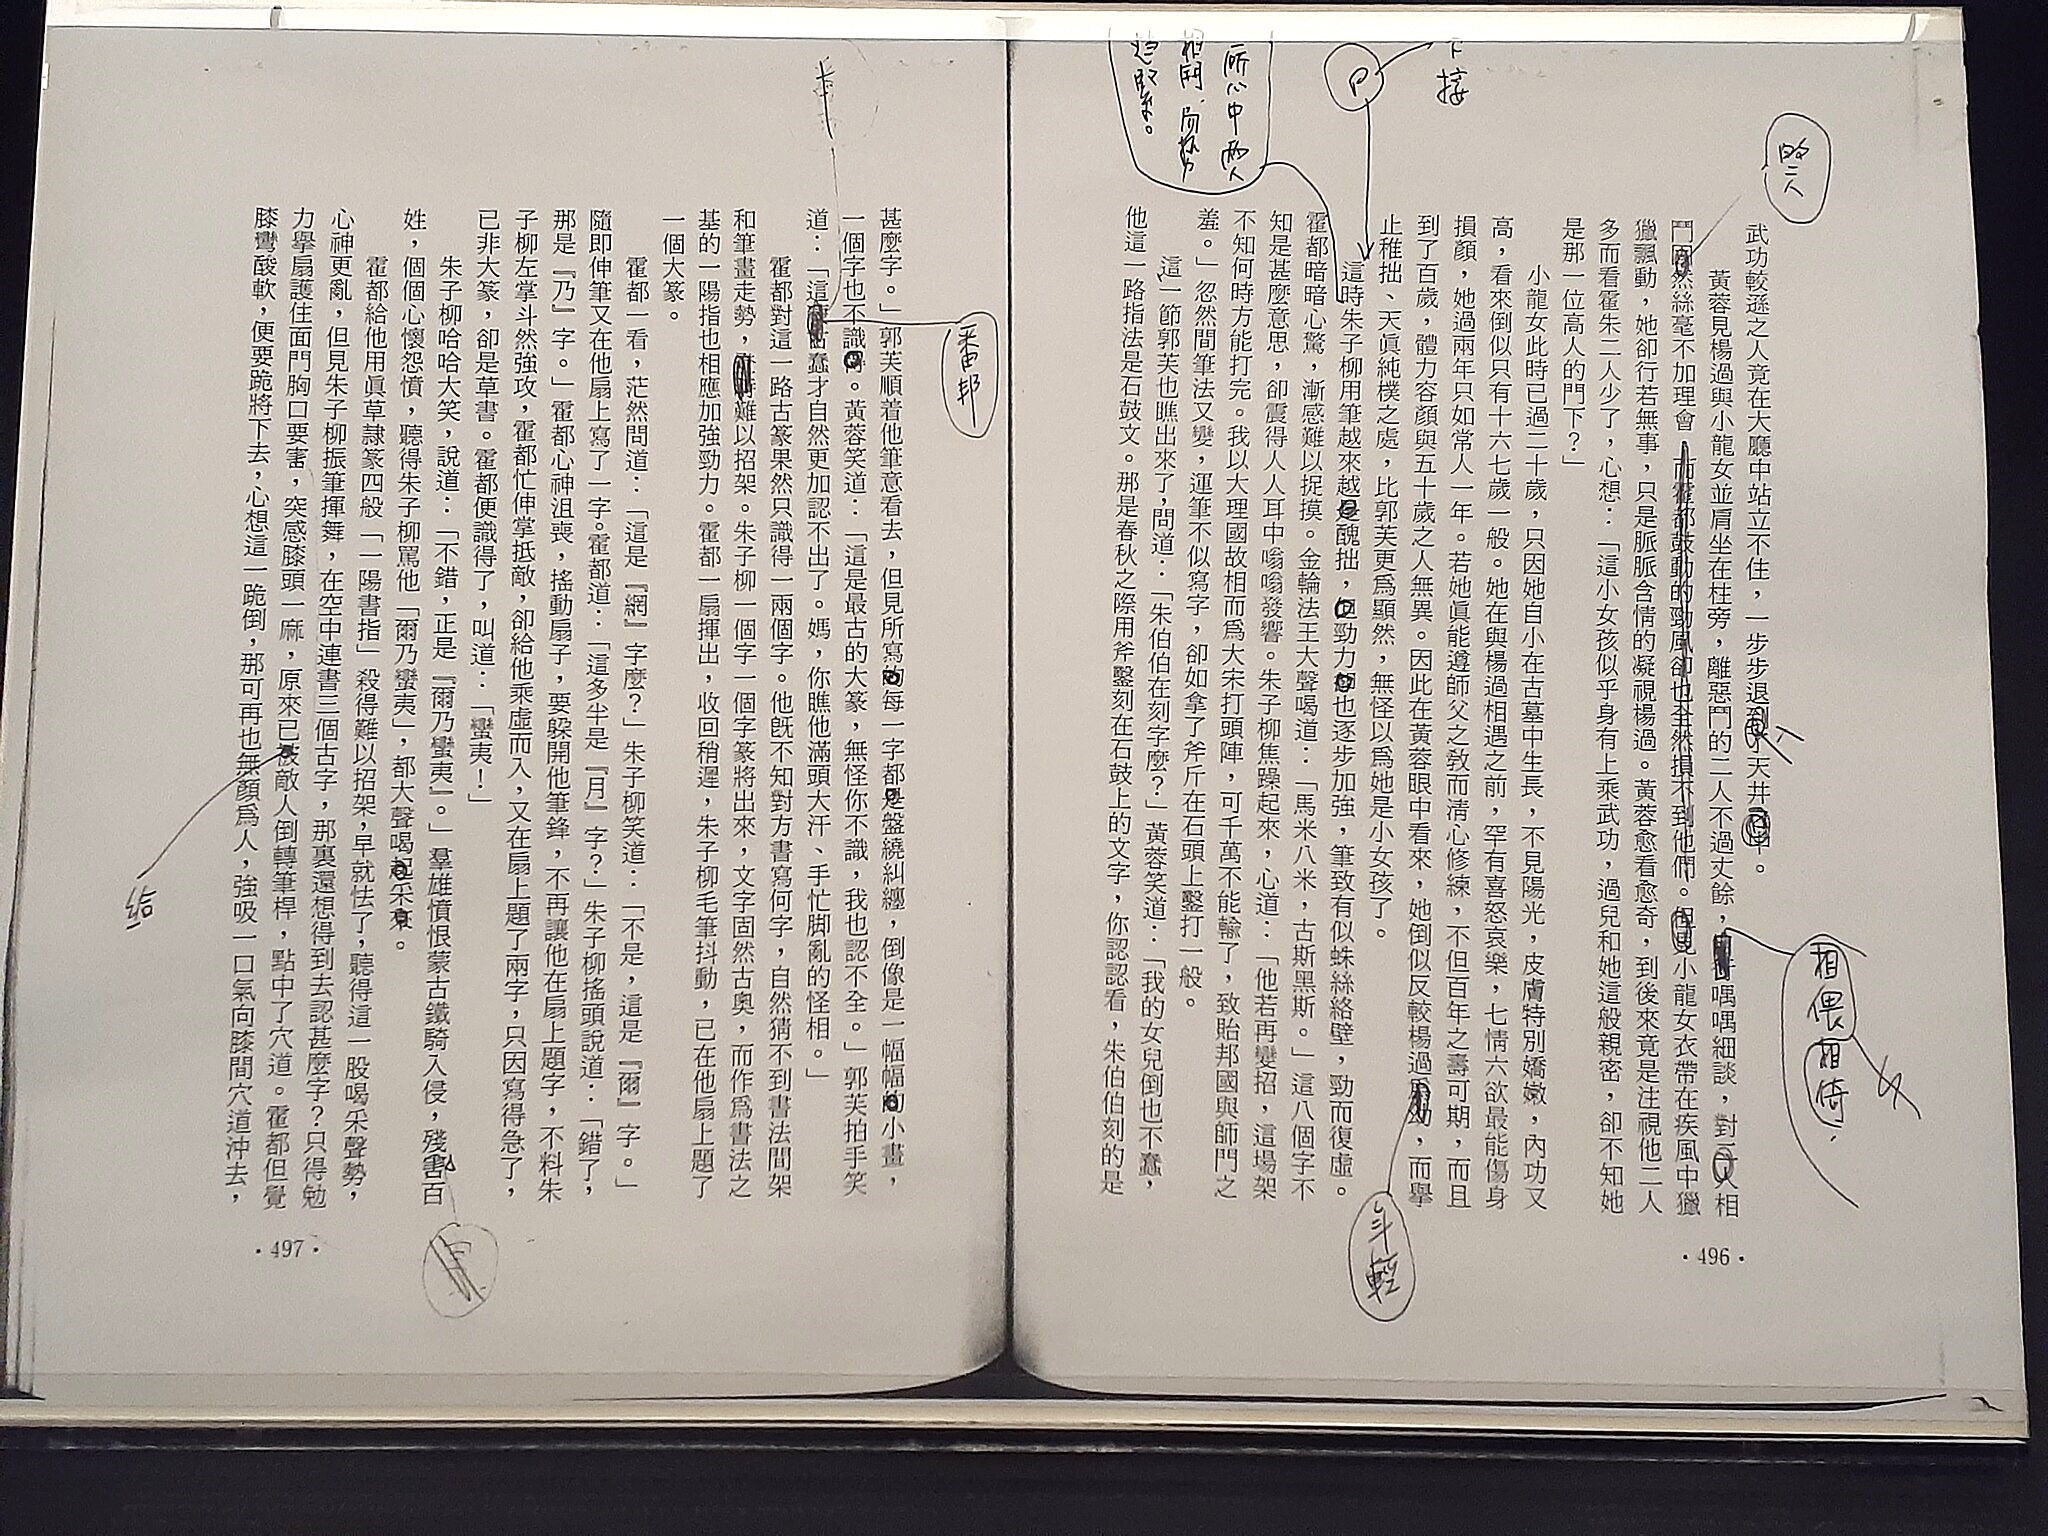 下接
的二人
廳心中兩人
相鬥，局勢
趕緊。
武功較遜之人竟在大廳中站立不住，一步步退到天井中。
黃蓉見楊過與小龍女並肩坐在柱旁，離惡鬥的二人不過丈餘，喁喁細談，對二人相
鬥固然絲毫不加理會，而霍都鼓動的勁風卻也全然損不到他們。但見小龍女衣帶在疾風中獵
獵飄動，她卻行若無事，只是脈脈含情的凝視楊過。黃蓉愈看愈奇，到後來竟是注視他二人
多而看霍朱二人少了，心想：「這小女孩似乎身有上乘武功，過兒和她這般親密，卻不知她
是那一位高人的門下？」
小龍女此時已過二十歲，只因她自小在古墓中生長，不見陽光，皮膚特別嬌嫩，內功又
高，看來倒似只有十六七歲一般。她在與楊過相遇之前，罕有喜怒哀樂，七情六欲最能傷身
損顏，她過兩年只如常人一年。若她眞能遵師父之敎而清心修練，不但百年之壽可期，而且
到了百歲，體力容顏與五十歲之人無異。因此在黃蓉眼中看來，她倒似反較楊過幼，而舉
止稚拙、天眞純樸之處，比郭芙更爲顯然，無怪以爲她是小女孩了。
這時朱子柳用筆越來越是醜拙，但勁力卻也逐步加強，筆致有似蛛絲絡壁，勁而復虛。
霍都暗暗心驚，漸感難以捉摸。金輪法王大聲喝道：「馬米八米，古斯黑斯。」這八個字不
知是甚麼意思，卻震得人人耳中嗡嗡發響。朱子柳焦躁起來，心道：「他若再變招，這場架
不知何時方能打完。我以大理國故相而爲大宋打頭陣，可千萬不能輸了，致貽邦國與師門之
羞。」忽然間筆法又變，運筆不似寫字，卻如拿了斧斤在石頭上鑿打一般。
這一節郭芙也瞧出來了，問道：「朱伯伯在刻字麼？」黃蓉笑道：「我的女兒倒也不蠢，
他這一路指法是石鼓文。那是春秋之際用斧鑿刻在石鼓上的文字，你認認看，朱伯伯刻的是
相偎相倚，
年輕
·496·
甚麼字。」郭芙順着他筆意看去，但見所寫的每一字都是盤繞糾纏，倒像是一幅幅的小畫，
一個字也不識得。黃蓉笑道：「這是最古的大篆，無怪你不識，我也認不全。」郭芙拍手笑
道：「這蠢才自然更加認不出了。媽，你瞧他滿頭大汗、手忙脚亂的怪相。」
霍都對這一路古篆果然只識得一兩個字。他旣不知對方書寫何字，自然猜不到書法間架
和筆畫走勢，難以招架。朱子柳一個字一個字篆將出來，文字固然古奧，而作爲書法之
基的一陽指也相應加強勁力。霍都一扇揮出，收回稍遲，朱子柳毛筆抖動，已在他扇上題了
一個大篆。
霍都一看，茫然問道：「這是『網』字麼？」朱子柳笑道：「不是，這是『爾』字。」
隨即伸筆又在他扇上寫了一字。霍都道：「這多半是『月』字？」朱子柳搖頭說道：「錯了，
那是『乃』字。」霍都心神沮喪，搖動扇子，要躱開他筆鋒，不再讓他在扇上題字，不料朱
子柳左掌斗然強攻，霍都忙伸掌抵敵，卻給他乘虛而入，又在扇上題了兩字，只因寫得急了，
已非大篆，卻是草書。霍都便識得了，叫道：「蠻夷！」
朱子柳哈哈大笑，說道：「不錯，正是『爾乃蠻夷』。」羣雄憤恨蒙古鐵騎入侵，殘害百
姓，個個心懷怨憤，聽得朱子柳罵他「爾乃蠻夷」，都大聲喝起采來。
霍都給他用眞草隷篆四般「一陽書指」殺得難以招架，早就怯了，聽得這一股喝采聲勢，
心神更亂，但見朱子柳振筆揮舞，在空中連書三個古字，那裏還想得到去認甚麼字？只得勉
力擧扇護住面門胸口要害，突感膝頭一麻，原來已被敵人倒轉筆桿，點中了穴道。霍都但覺
膝彎酸軟，便要跪將下去，心想這一跪倒，那可再也無顏爲人，強吸一口氣向膝間穴道沖去，
番邦
給
·497·